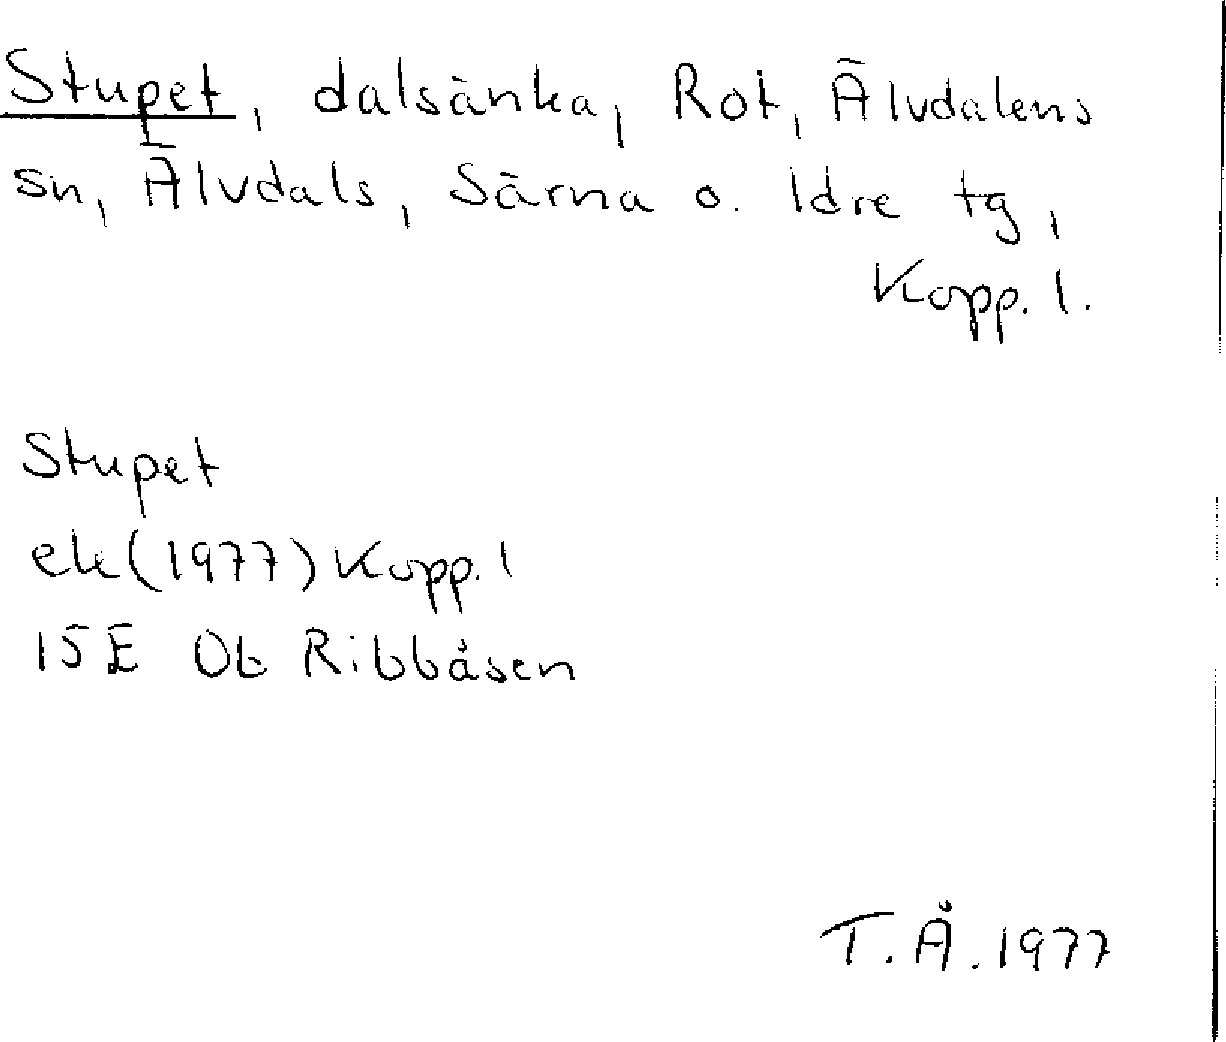 Stupet, dalsänka, Rot, Älvdalens
sn, Älvdals, Särna o. Idre tg,
Kopp. l.
Stupet
ek(1977) Kopp. l
15E 0b Ribbåsen
T.Å. 1977